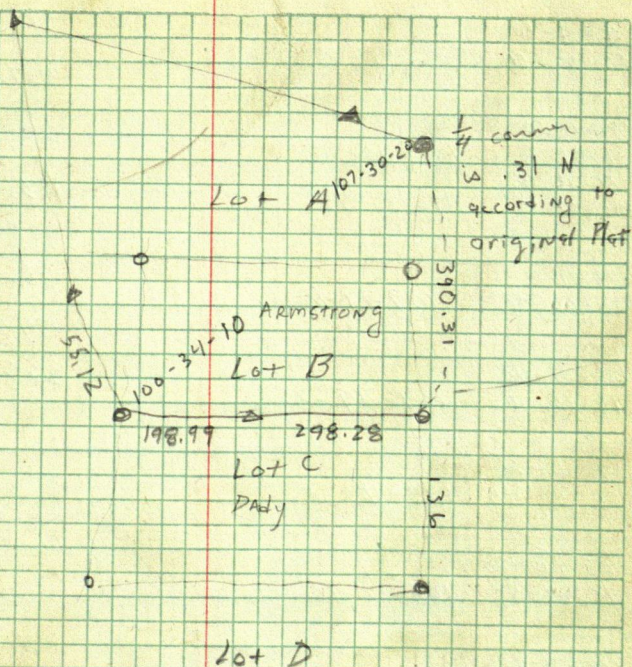 1/4 corner
is .31 N
according to
original Plat
Lot A
107-30-20
390.31
ARMSTRONG
100-34-10
Lot B
55.12
198.99 298.28
Lot C
DAdy
136
Lot D